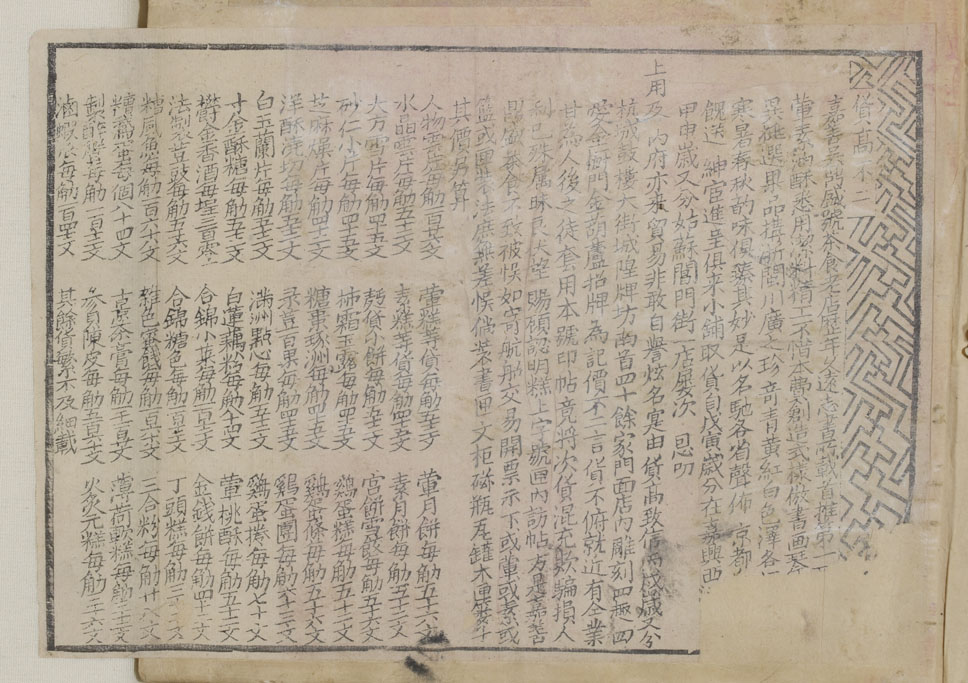 貨高不二
嘉善 盛號茶食老店歷年久遠志書誌載首推第一
葷素油酥悉用潔淨精工不惜本費創造式樣倣書画琴
異維選果品搆浙閩川廣之珍奇青黃紅白色澤各
寒暑春秋的味俱臻其妙足以名馳各省聲佈 京都
餽送 紳宦進呈俱來小鋪取貨自戊寅歲分在嘉興西
甲申歲又分姑蘇閶門街一店屢次 恩叨
上用及 內府亦來貿易非敢自譽炫名寔由貨高致信丙戌歲又分
杭城鼓樓大街城隍牌坊南首四十餘家門面店內雕刻四趣四
愛金廚門金葫蘆招牌為記價不二言貨不俯就近有仝業
甘為人後之徒套用本號印帖竟將次貨混充欺騙損人
利己殊屬昧良伏望 賜顧認明糕上字號匣內訪帖方是嘉善
鼎盛茶食不致被悞如寄航船交易開票示下或葷或素或
籃或匣來法庶無差悞倘裝書匣文柜磁瓶瓦罐木匣簍斗
其價另算
人物雲片每觔 文
水晶雲片每觔 文
大方雲片每觔四十文
砂仁小片每觔四十文
芝麻燥片每觔四十文
洋酥淮切每觔五十文
白玉蘭片每觔五十文
寸金酥糖每觔五十文
欝金香酒每埕三百
法製荳豉每觔五十六文
糟風魚每觔一百四十八文
糟窩蛋每個八十四文
製醉蟹每觔一百 文
滷蝦瓜每觔一百四十文
葷糕等貨每觔五十文
素糕等貨每觔四十文
殼貨小餅每觔四十文
柿霜玉露每觔四十文
糖棗琢洲每觔四十文
彔荳百果每觔四十文
滿洲點心每觔五十文
白蓮藕粉每觔八十四文
合錦小菜每觔一百 文
合錦糖色每觔一百 文
雜色蜜餞每觔一百 文
古棗茶膏每觔一百 文
參貝陳皮每觔五百六十文
其餘貨繁不及細載
葷月餅每觔五十六文
素月餅每觔四十文
宮餅雪餃每觔五十六文
鷄蛋糕每觔五十文
鷄蛋條每觔五十六文
鷄蛋圓每觔六十文
鷄蛋捲每觔七十文
葷桃酥每觔五十文
金錢餅每觔四十文
丁頭糕每觔三十文
三合粉每觔廿八文
薄荷軟糕每觔 文
火炙元糕每觔三十六文